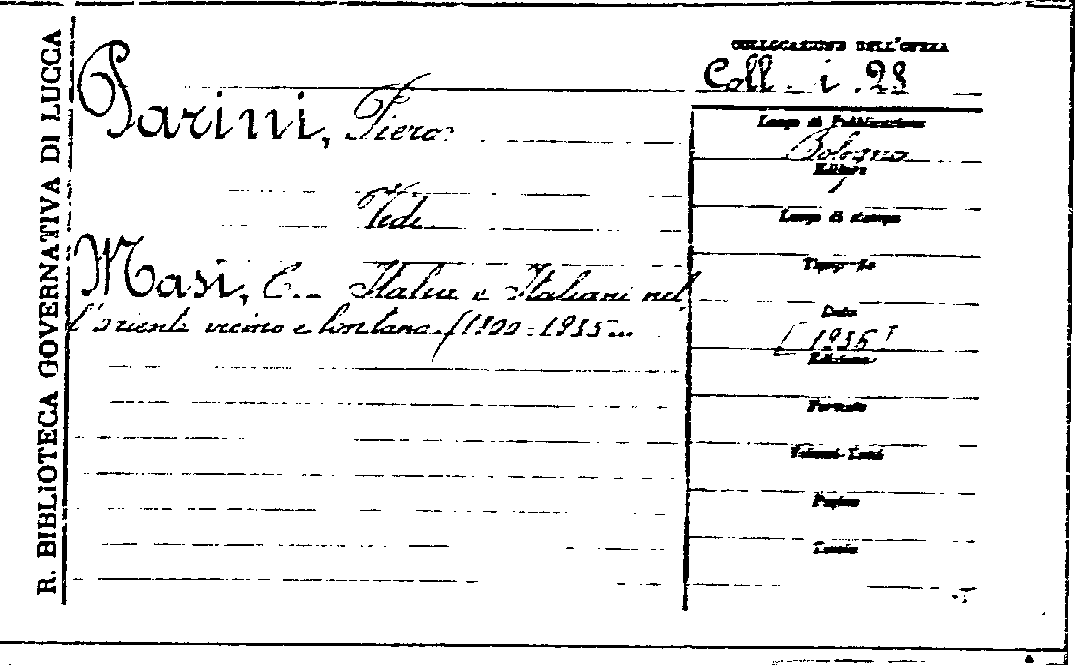 R. BIBLIOTECA GOVERNATIVA DI LUCCA
Parini, Piero
Vedi
Masi, C. - Italia e Italiani nel
l'oriente vicino e lontano (1800-1935..
COLLOCAZIONE DELL'OPERA
Coll. i. 28
Luogo di Pubblicazione
Bologna
Editore
Luogo di stampa
Tipografo
Data
[1936]
Edizione
Formato
Volumi-Tomi
Pagine
Tavole